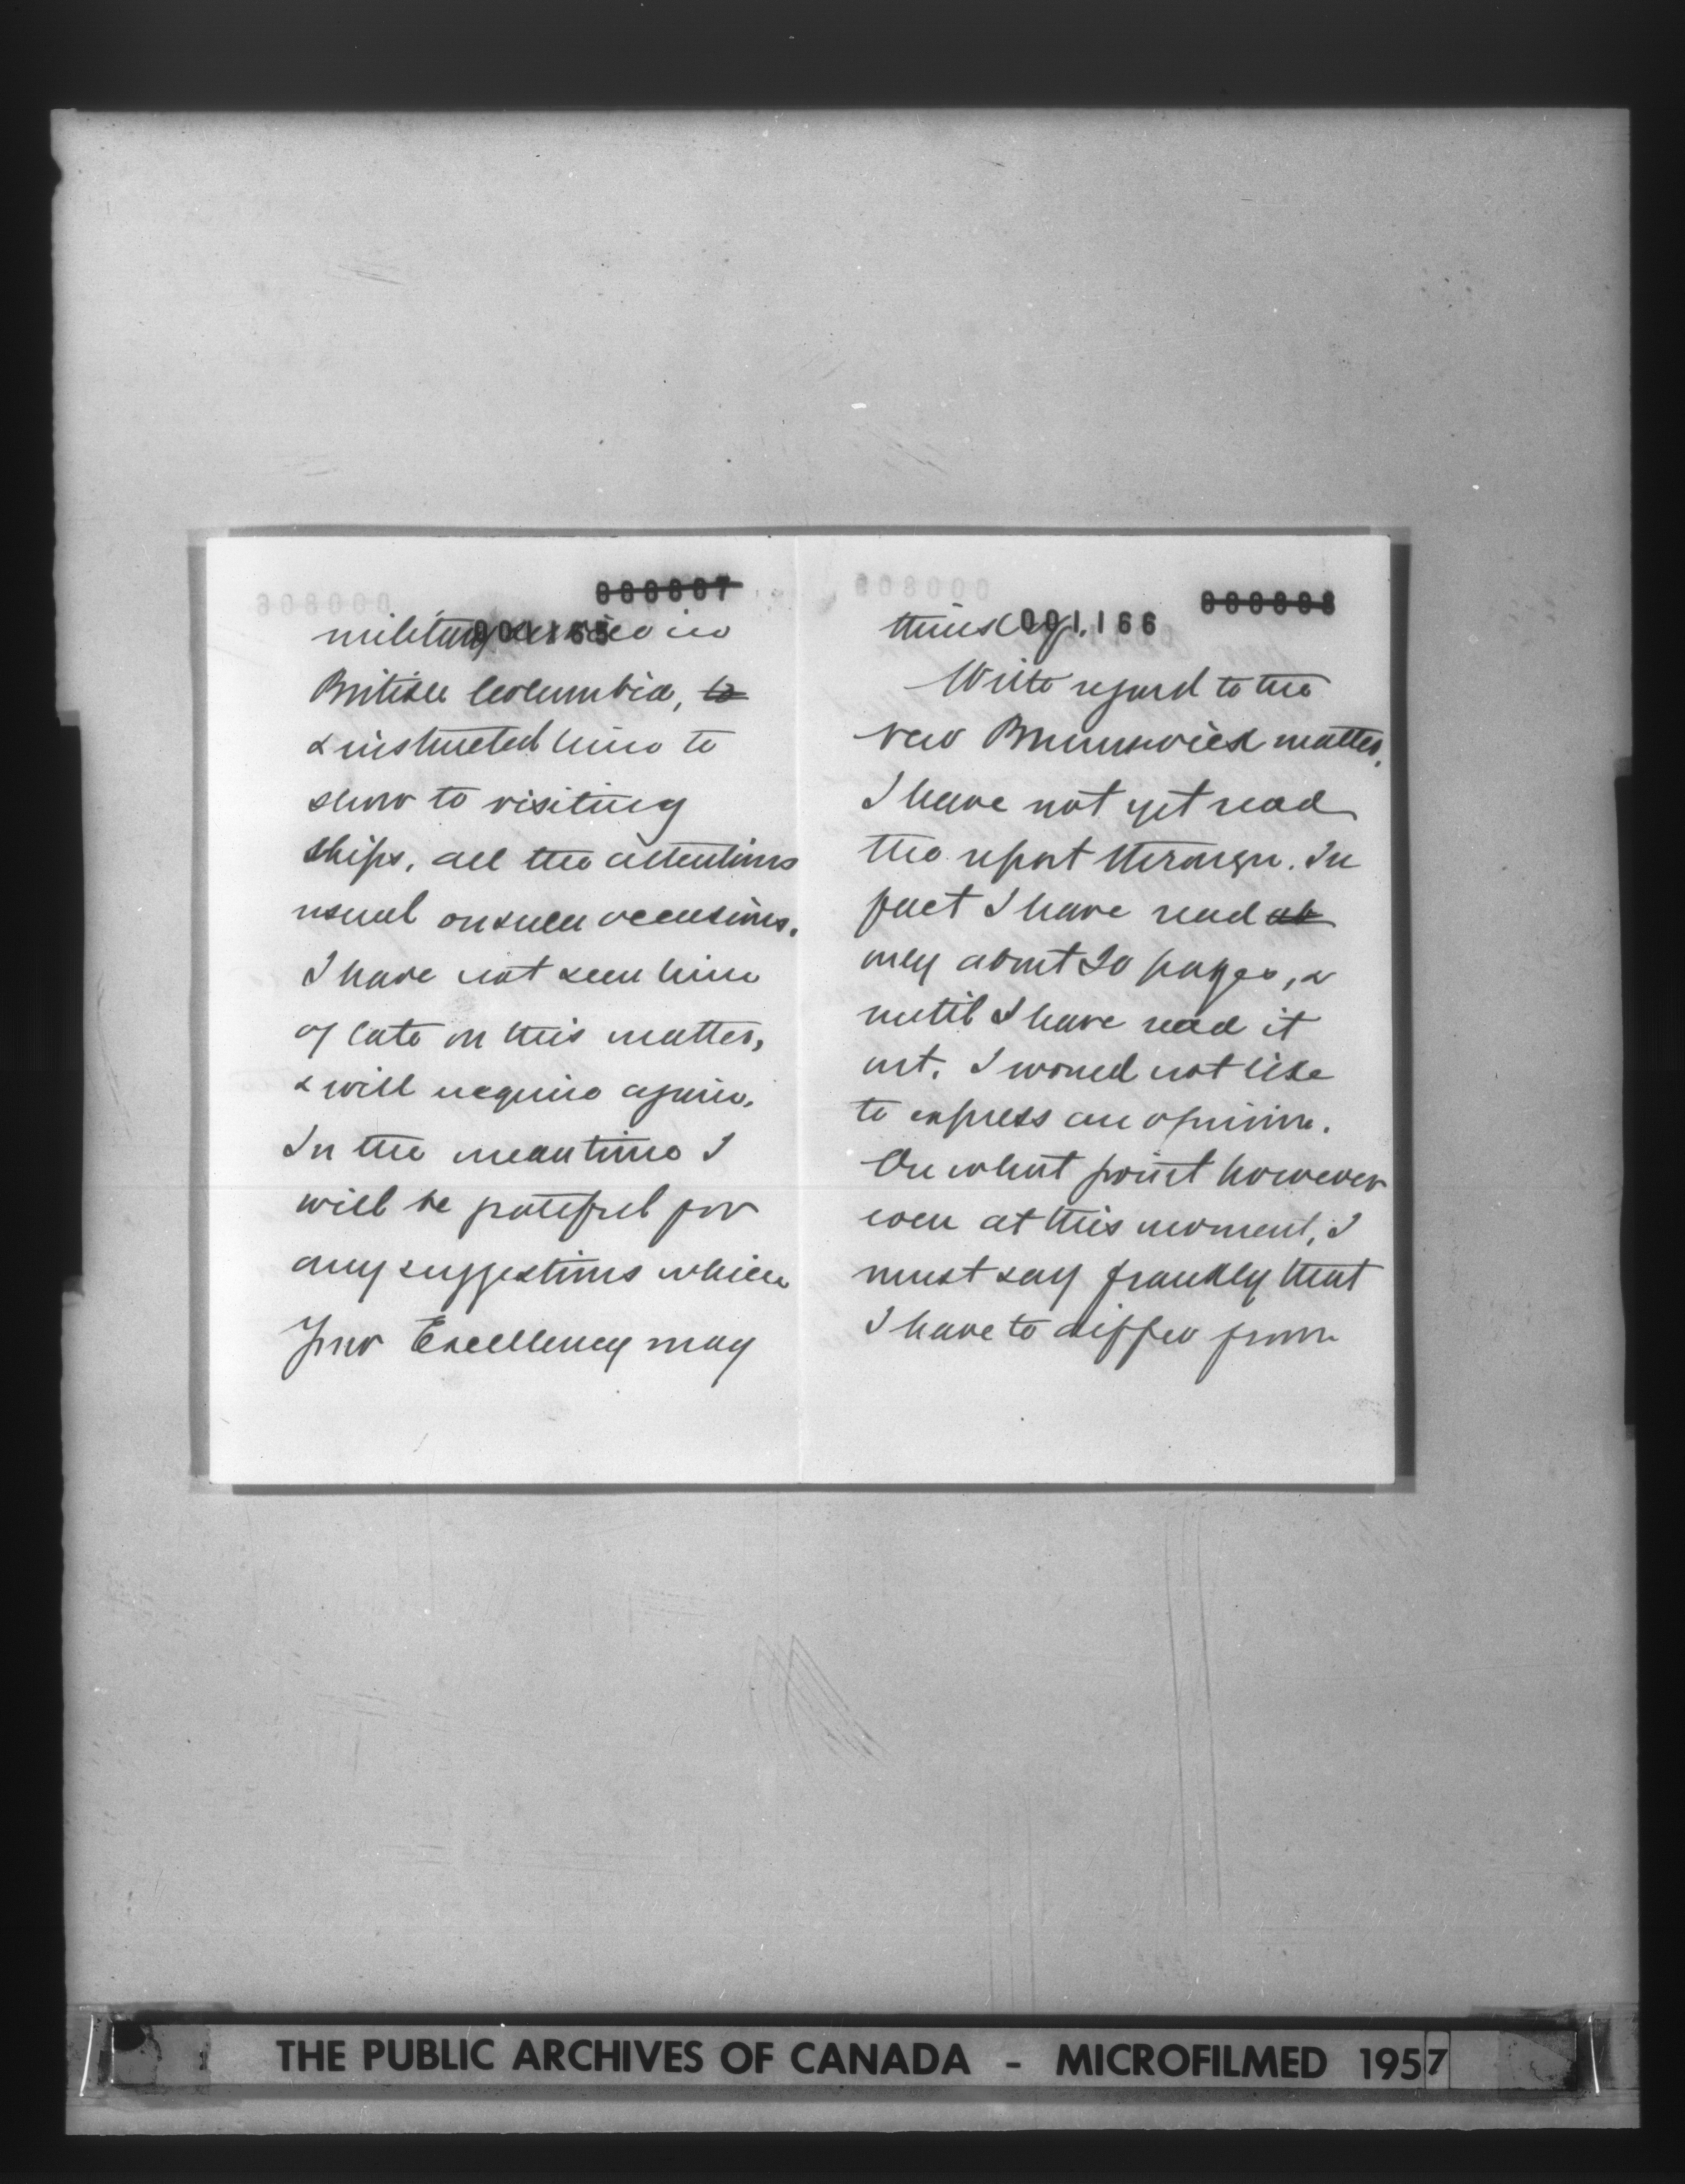 000007
001165
military service in
British Columbia, to
& instructed him to
show to visiting
ships, all the attentions
usual on such occasions.
I have not seen him
of late on this matter,
& will enquire again.
In the meantime I
will be grateful for
any suggestions which
Your Excellency may
000008
001166
think of.
With regard to the
New Brunswick matter,
I have not yet read
the report through. In
fact I have read ab
only about 20 pages, &
until I have read it
out, I would not like
to express an opinion.
On what point however
even at this moment, I
must say frankly that
I have to differ from
THE PUBLIC ARCHIVES OF CANADA - MICROFILMED 1957